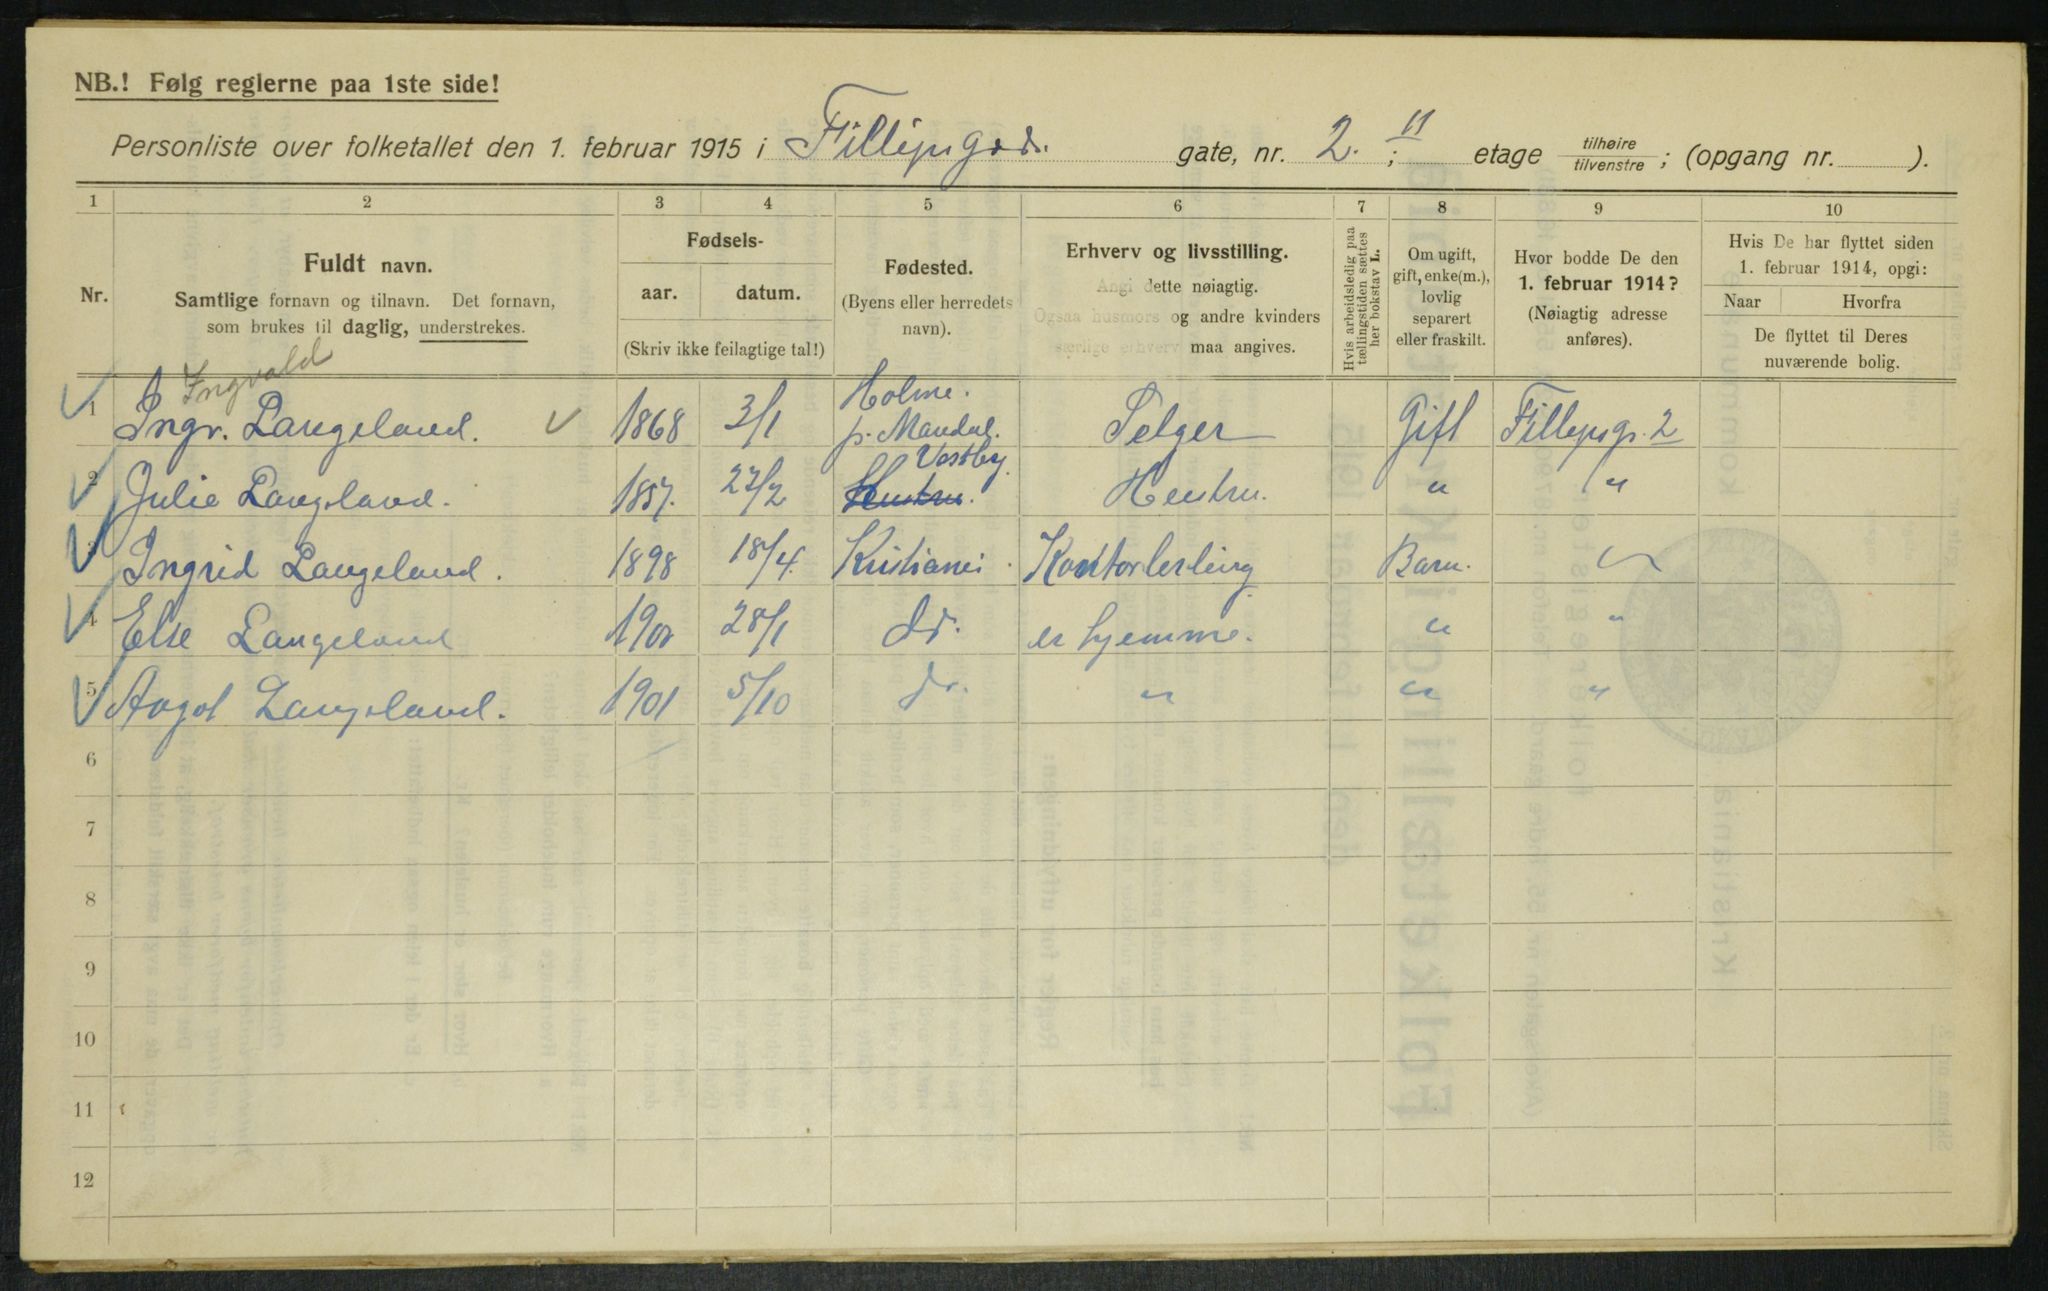 NB.! Følg reglerne paa 1ste side!
Personliste over folketallet den 1. februar 1915 i Fillipsgdn. gate, nr. 2. ; II etage tilhøire tilvenstre ; (opgang nr. ).
1 2 3 4 5 6 7 8 9 10
Nr.
Fuldt navn.
Samtlige fornavn og tilnavn. Det fornavn,
som brukes til daglig, understrekes.
Fødsels-
aar. datum.
(Skriv ikke feilagtige tal!)
Fødested.
(Byens eller herredets
navn).
Erhverv og livsstilling.
Angi dette nøiagtig.
Ogsaa husmors og andre kvinders
særlige erhverv maa angives.
Hvis arbeidsledig paa
tællingstiden sættes
her bokstav L.
Om ugift,
gift, enke(m.),
lovlig
separert
eller fraskilt.
Hvor bodde De den
1. februar 1914?
(Nøiagtig adresse
anføres).
Hvis De har flyttet siden
1. februar 1914, opgi:
Naar Hvorfra
De flyttet til Deres
nuværende bolig.
Ingvald
1 Ingv. Langeland. 1868 3/1 Holme. p. Mandal. Selger Gift Fillipsg. 2
2 Julie Langeland. 1857. 27/2 Hustru. Vestby. Hustru. " "
3 Ingrid Langeland. 1898 18/4. Kristiania. Kontorlerling Barn. "
4 Else Langeland 1900 28/1 do. er hjemme. " "
5 Aagot Langeland. 1901 5/10 do. " " "
6
7
8
9
10
11
12